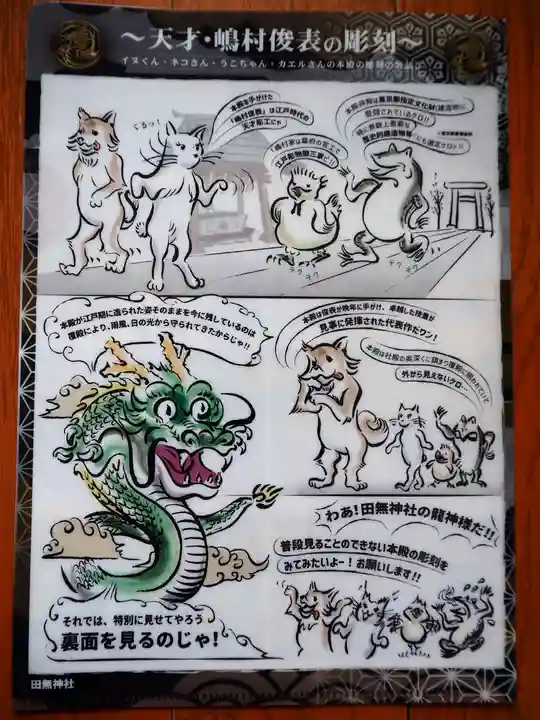 〜天才・嶋村俊表の彫刻〜
イヌくん・ネコさん・うこちゃん・カエルさんの本殿の彫刻のお話
ぐるっ!
本殿を手がけた
「嶋村俊表」は江戸時代の
天才彫工にゃ
「嶋村家は幕府の官工で
江戸彫物御三家ピ!!
本殿・拝殿は東京都指定文化財(建造物)に
登録されているケロ!!
特に景観上重要な
歴史的建造物等にも選定ケロッ!!
テクテク
テクテク
本殿が江戸期に造られた姿そのままを今に残しているのは
覆殿により、雨風、日の光から守られてきたからじゃ!!
本殿は俊表が晩年に手がけ、卓越した技量が
見事に発揮された代表作だワン!
本殿は社殿の奥深くに鎮まり覆殿に囲われていて、
外から見えないケロ…
わあ!田無神社の龍神様だ!!
普段見ることのできない本殿の彫刻を
みてみたいよー!お願いします!!
それでは、特別に見せてやろう
裏面を見るのじゃ!
田無神社